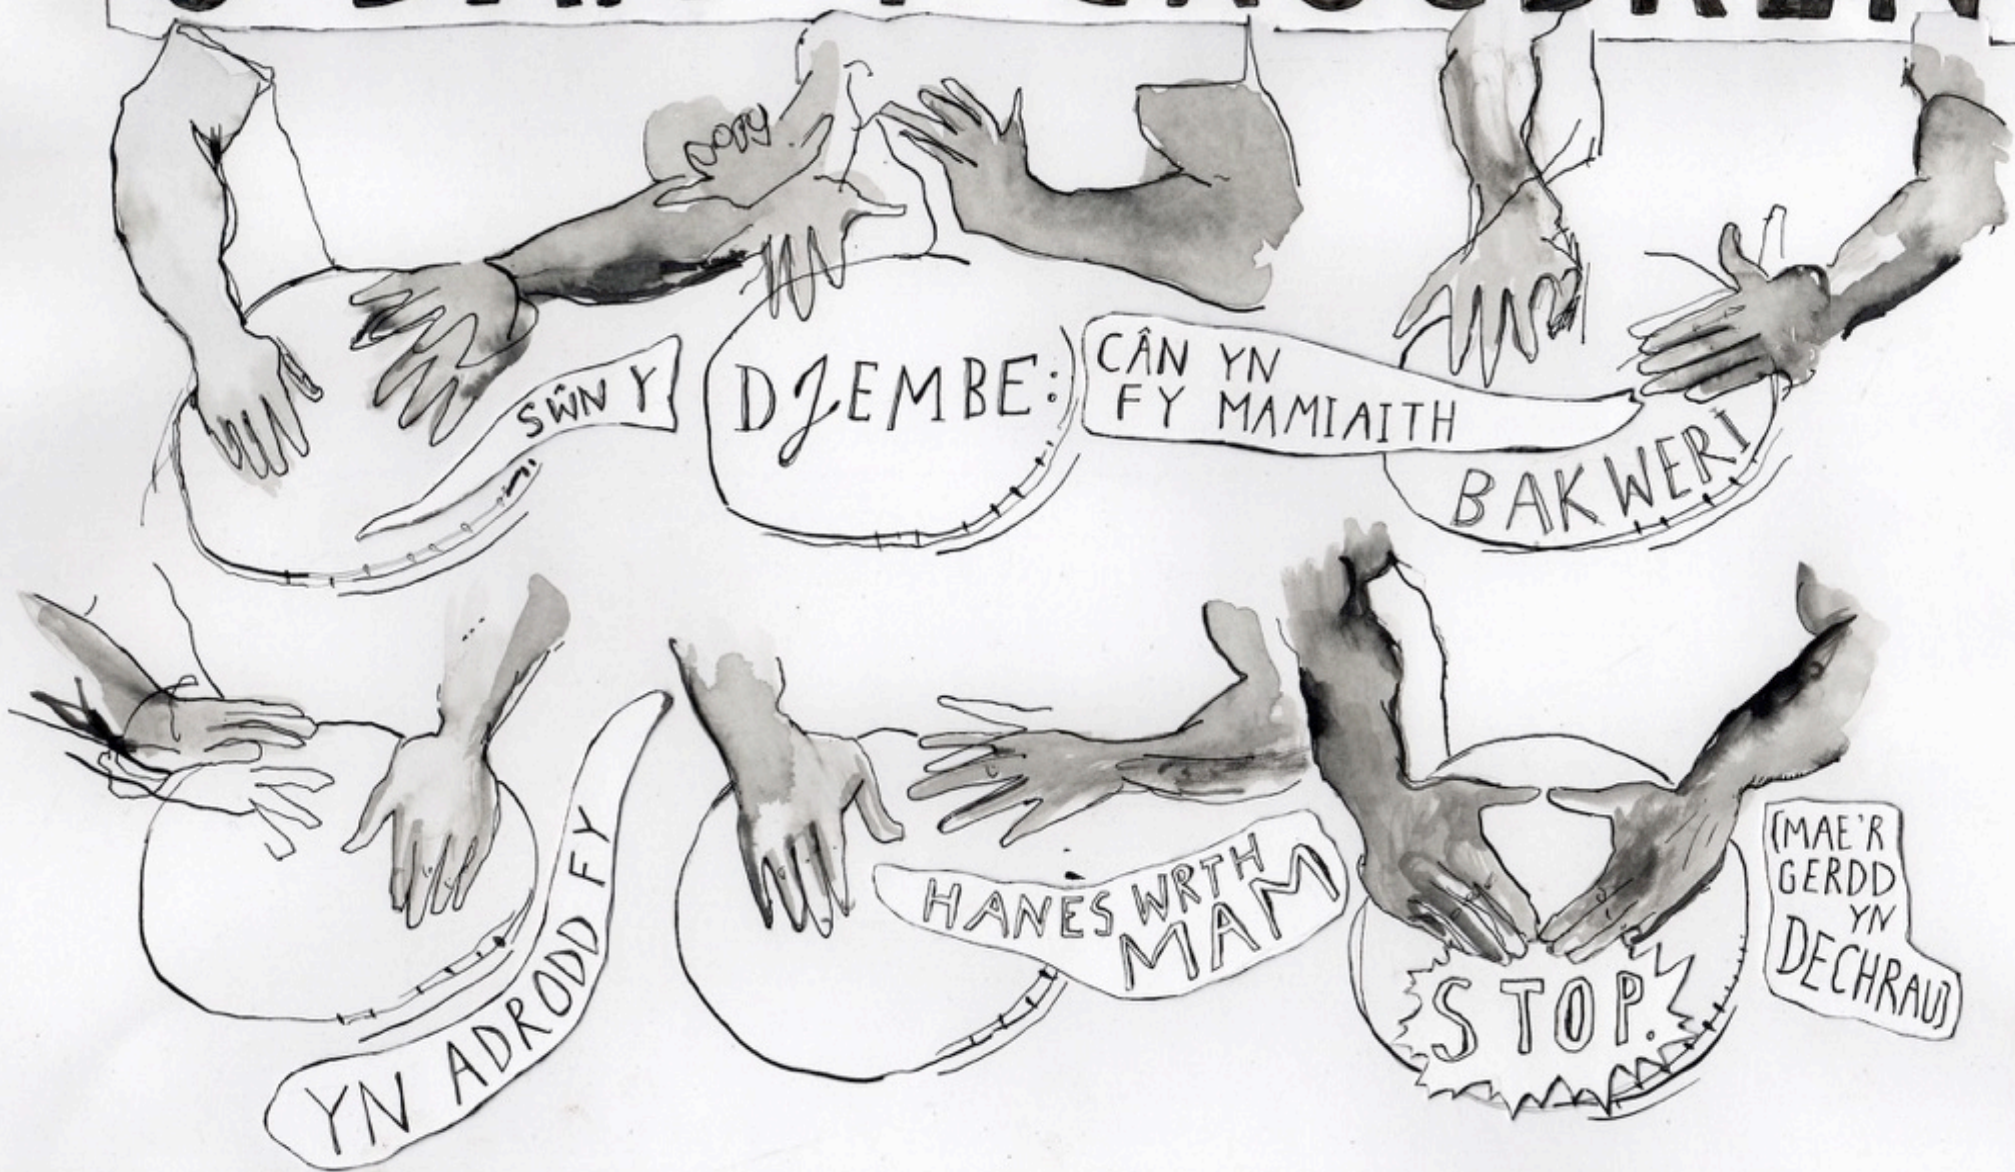 SŴN Y
DJEMBE:
CÂN YN
FY MAMIAITH
BAKWERI
YN ADRODD FY
HANES WRTH
MAM
STOP.
(MAE'R
GERDD
YN
DECHRAU)